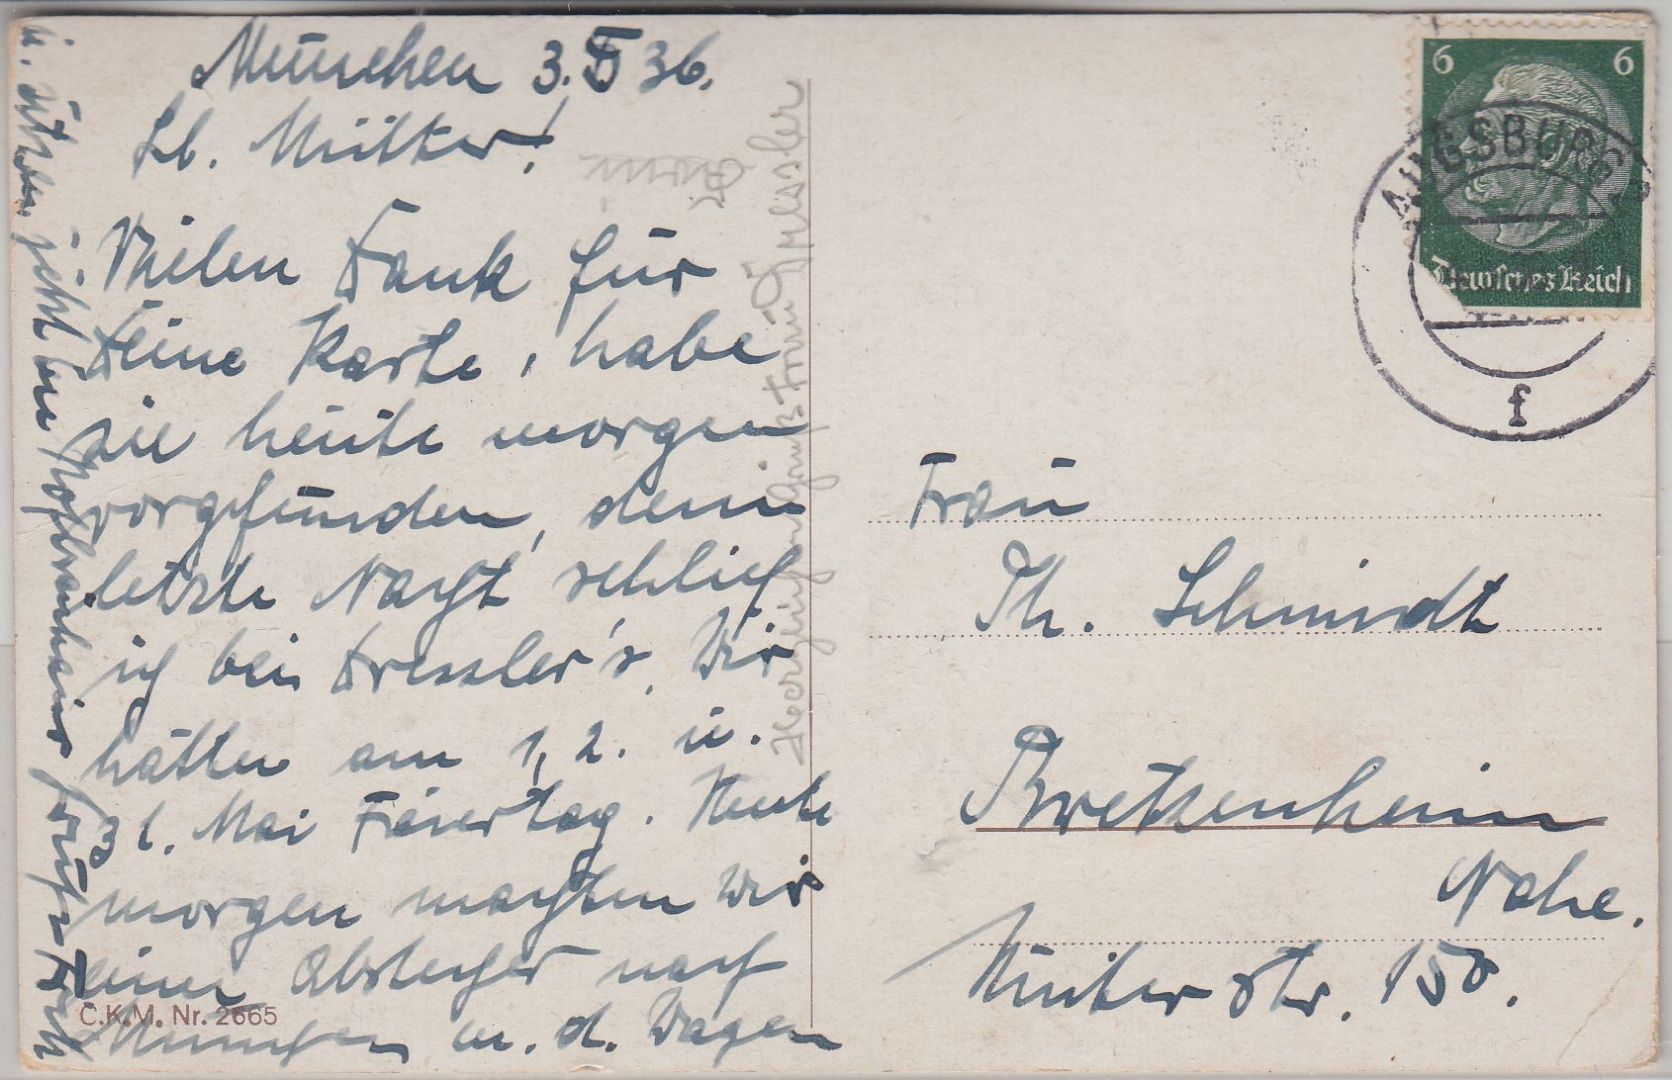 München 3.5 36.
Lb. Mutter!
Vielen Dank für
Deine Karte, habe
sie heute morgen
vorgefunden, denn
letzte Nacht schlief
ich bei Dressler's. Wir
hatten am 1, 2. u.
3 t. Mai Feiertag. Heute
morgen machten wir
einen Abstecher nach
München m. d. Wagen
u. sitzen jetzt im Hofbräuhaus
Herzlichen Gruß Frau Dressler
C.K.M. Nr. 2665
6 6
Deutsches Reich
AUGSBURG 2
f
Frau
Th. Schmidt
Bretzenheim
Nahe.
Winter str. 158.